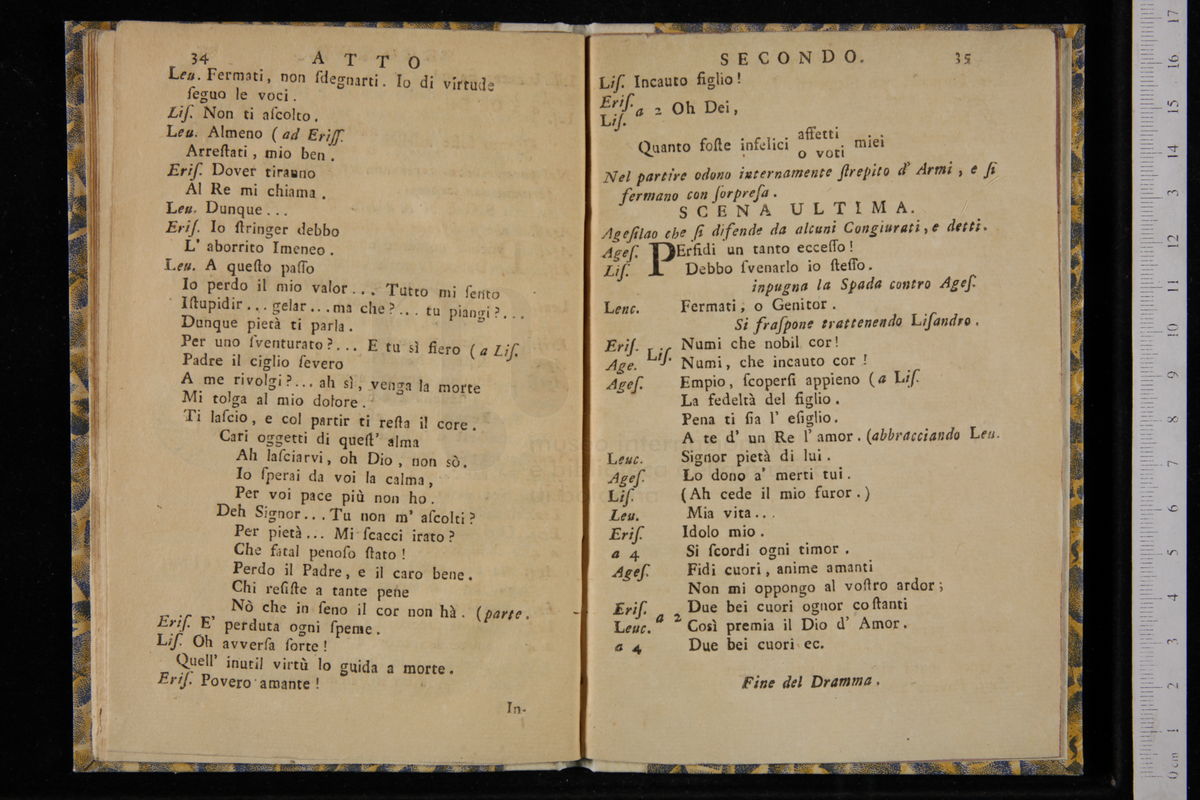 34 A T T O
Leu. Fermati, non ſdegnarti. Io di virtude
ſeguo le voci.
Liſ. Non ti aſcolto.
Leu. Almeno (ad Eriſſ.
Arreſtati, mio ben.
Eriſ. Dover tiranno
Al Re mi chiama.
Leu. Dunque...
Eriſ. Io ſtringer debbo
L' aborrito Imeneo.
Leu. A queſto paſſo
Io perdo il mio valor... Tutto mi ſento
Iſtupidir... gelar... ma che?... tu piangi?...
Dunque pietà ti parla.
Per uno ſventurato?... E tu sì fiero (a Liſ.
Padre il ciglio ſevero
A me rivolgi?... ah sì, venga la morte
Mi tolga al mio dolore.
Ti laſcio, e col partir ti reſta il core.
Cari oggetti di queſt' alma
Ah laſciarvi, oh Dio, non sò.
Io ſperai da voi la calma,
Per voi pace più non ho.
Deh Signor... Tu non m' aſcolti?
Per pietà... Mi ſcacci irato?
Che fatal penoſo ſtato!
Perdo il Padre, e il caro bene.
Chi reſiſte a tante pene
Nò che in ſeno il cor non hà. (parte.
Eriſ. E' perduta ogni ſpeme.
Liſ. Oh avverſa ſorte!
Quell' inutil virtù lo guida a morte.
Eriſ. Povero amante!
In-
SECONDO. 35
Liſ. Incauto figlio!
Eriſ.
Liſ. a 2 Oh Dei,
Quanto foſte infelici affetti miei
o voti
Nel partire odono internamente ſtrepito d' Armi, e ſi
fermano con ſorpreſa.
SCENA ULTIMA.
Ageſilao che ſi difende da alcuni Congiurati, e detti.
Ageſ. PErfidi un tanto ecceſſo!
Liſ. Debbo ſvenarlo io ſteſſo.
inpugna la Spada contro Ageſ.
Lenc. Fermati, o Genitor.
Si fraſpone trattenendo Liſandro.
Eriſ. Numi che nobil cor!
Age. Liſ. Numi, che incauto cor!
Ageſ. Empio, ſcoperſi appieno (a Liſ.
La fedeltà del figlio.
Pena ti ſia l' eſiglio.
A te d' un Re l' amor. (abbracciando Leu.
Leuc. Signor pietà di lui.
Ageſ. Lo dono a' merti tui.
Liſ. (Ah cede il mio furor.)
Leu. Mia vita...
Eriſ. Idolo mio.
a 4 Si ſcordi ogni timor.
Ageſ. Fidi cuori, anime amanti
Non mi oppongo al voſtro ardor;
Eriſ. a 2 Due bei cuori ognor coſtanti
Leuc. Così premia il Dio d' Amor.
a 4 Due bei cuori ec.
Fine del Dramma.